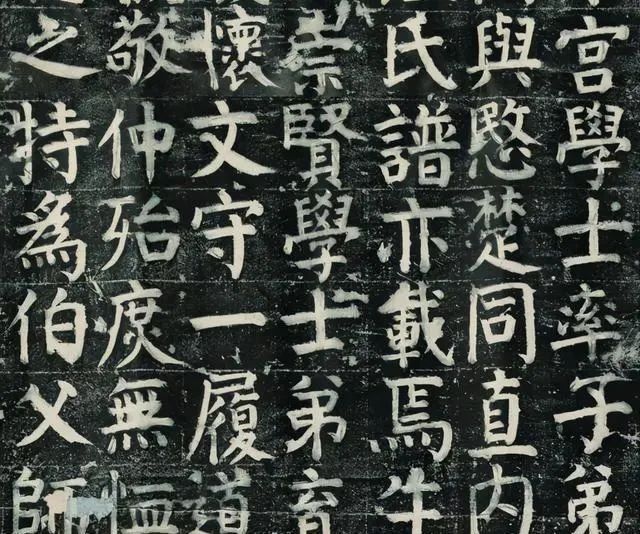 宮學士率子弟
與愍楚同直内
氏譜亦載焉牛
崇賢學士弟育
懷文守一履道
敬仲殆庶無恤
之特為伯父師